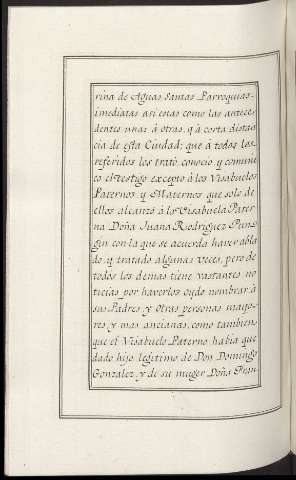 rina de Aguas Santas Parroquias
imediatas asi estas como las antece
dentes unas á otras, y á corta distan
cia de esta Ciudad; que á todos los
referidos los trató, conoció y comuni
co el testigo excepto á los Visabuelos
Paternos, y Maternos que solo de
ellos alcanzó á la Visabuela Pater
na Doña Juana Rodriguez Pun
gin con la que se acuerda haver abla
do, y tratado algunas veces, pero de
todos los demas tiene vastantes no
ticias por haverlos oydo nombrar á
sus Padres y otras personas mayo
res y mas ancianas, como tambien
que el Visabuelo Paterno había que
dado hijo legitimo de Don Domingo
Gonzalez, y de su muger Doña Fran